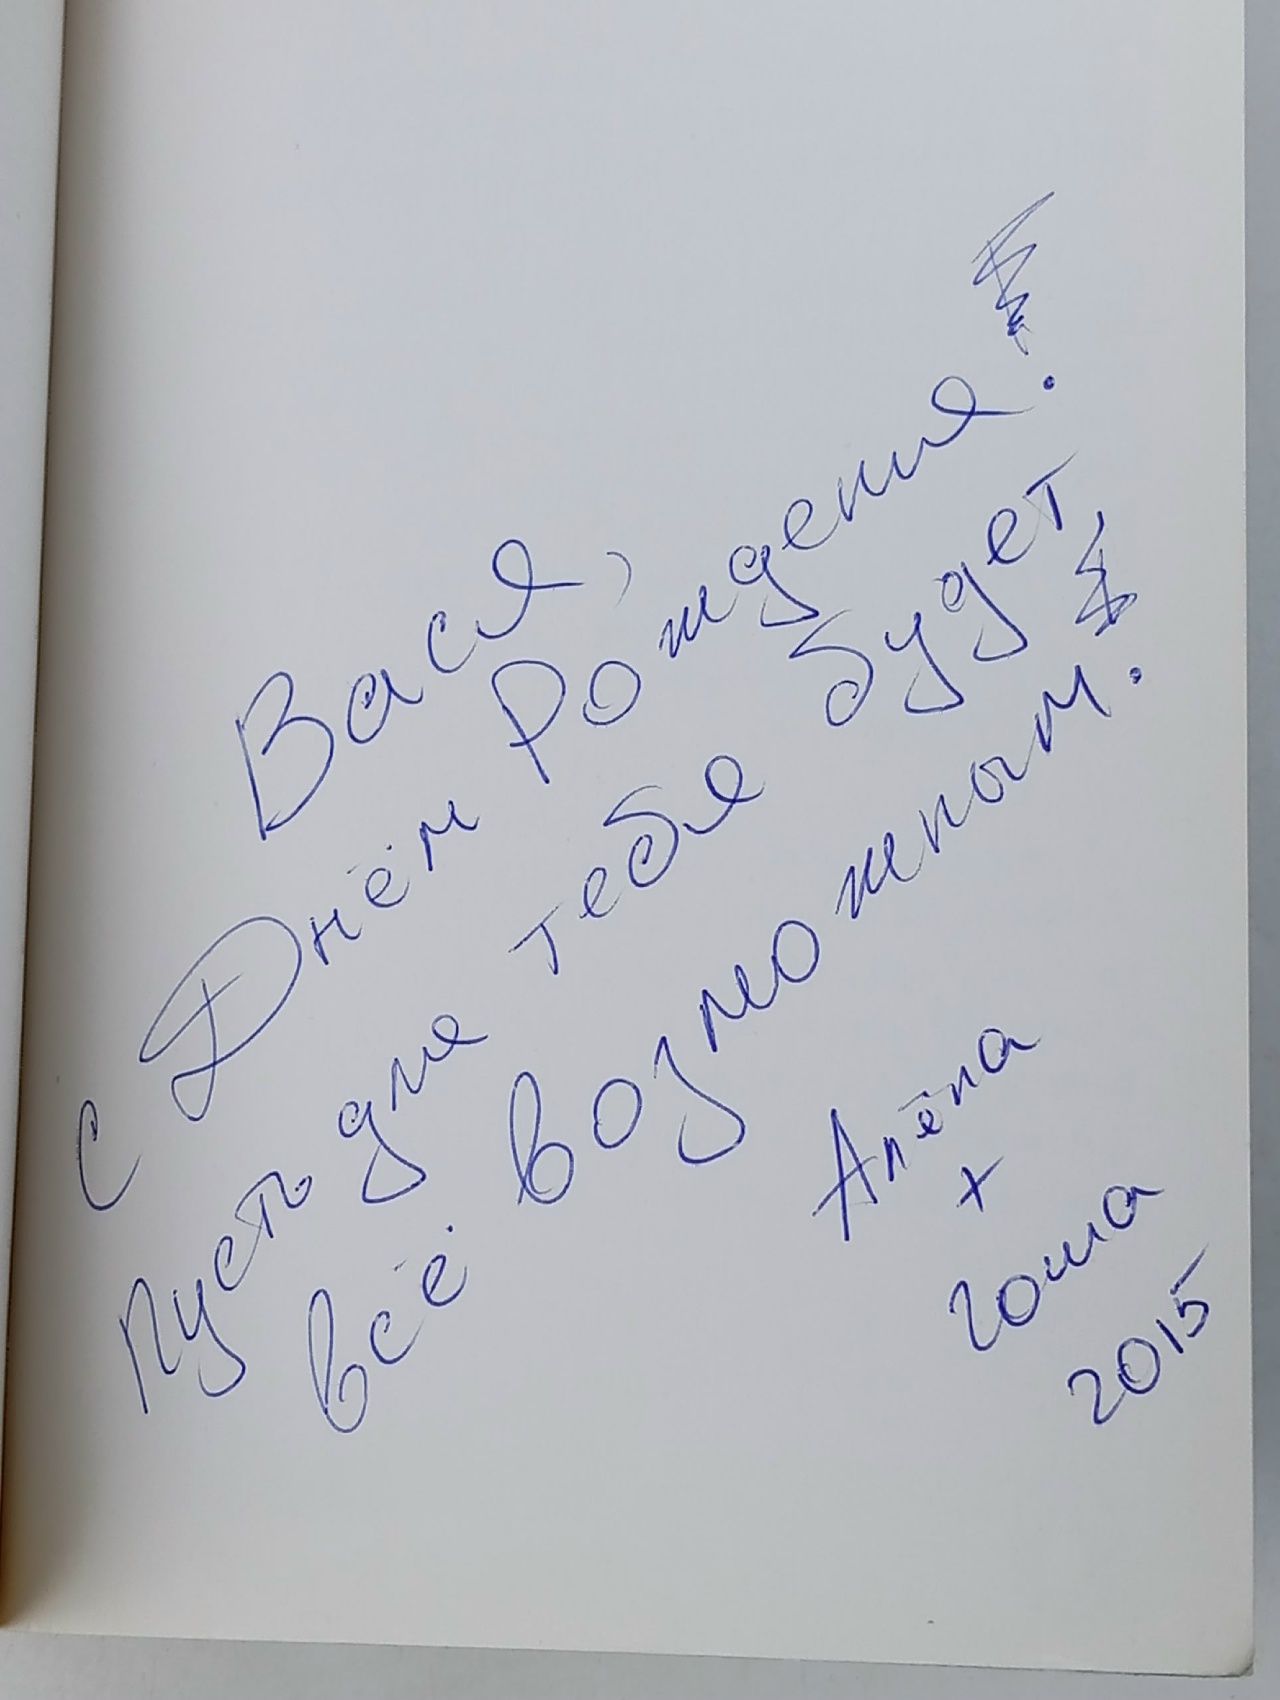 Вася,
С Днём Рождения!
Пусть для тебя будет
всё возможным!
Алёна
+
Гоша
2015